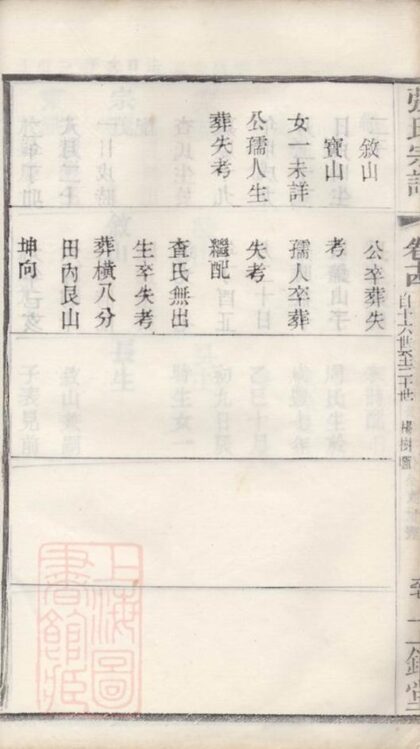 張氏宗譜
卷十四
敘山
寶山
女一未詳
公孺人生
葬失考
公卒葬失
考
孺人卒葬
失考
繼配
查氏無出
生卒失考
葬橫八分
田內艮山
坤向
上海圖
書館藏